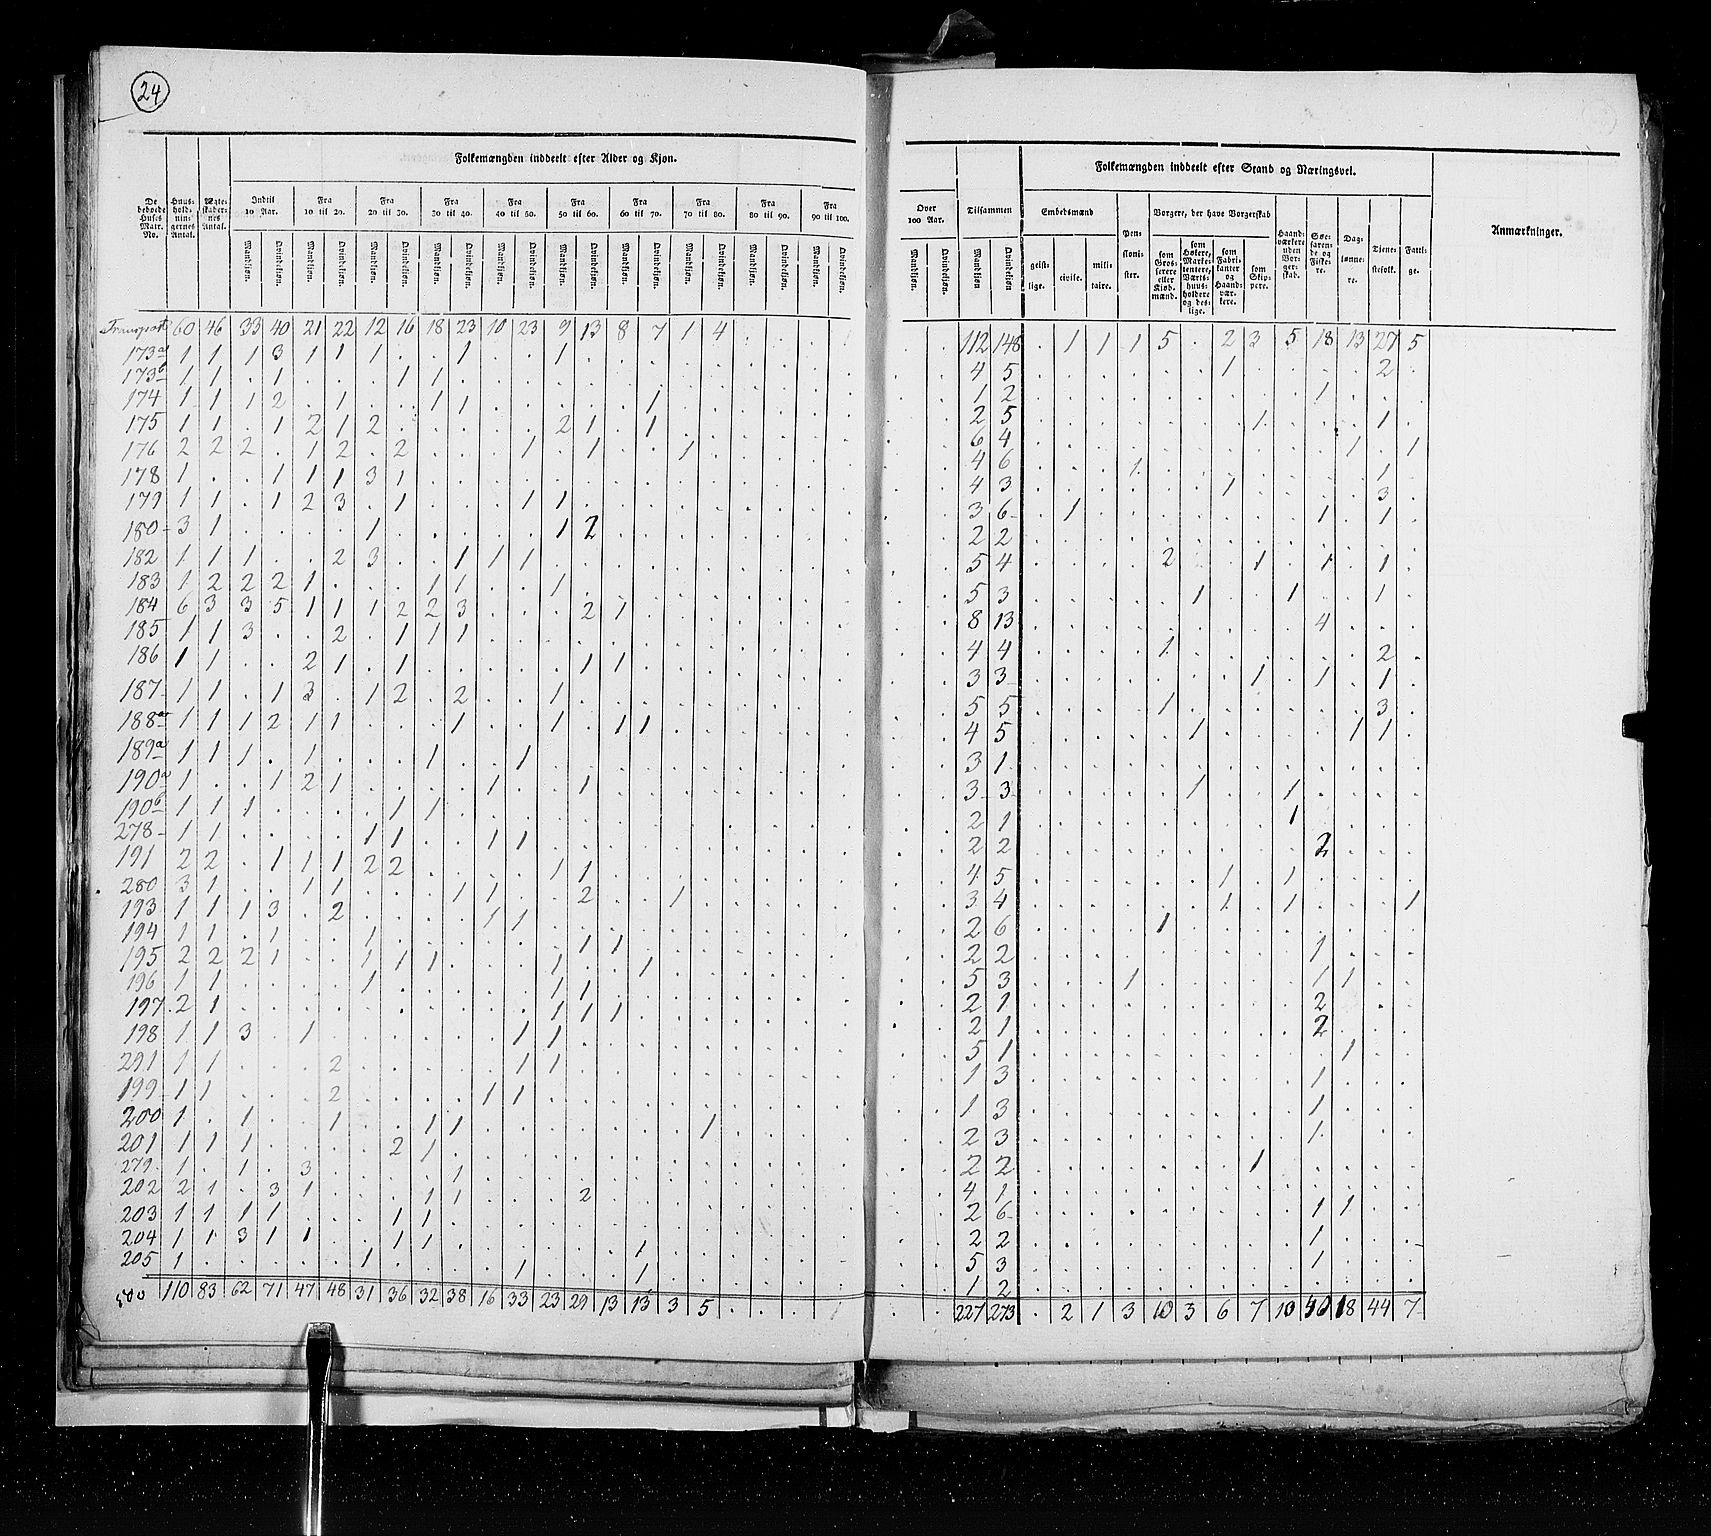 24
Folkemængden inddeelt efter Alder og Kjøn.
De beboede Huses Matr. No. Huus-hold-nin-gernes Antal. Ægte-skaber-nes Antal. Indtil 10 Aar. Fra 10 til 20. Fra 20 til 30. Fra 30 til 40. Fra 40 til 50. Fra 50 til 60. Fra 60 til 70. Fra 70 til 80. Fra 80 til 90. Fra 90 til 100.
Mandkjøn. Qvindekjøn. Mandkjøn. Qvindekjøn. Mandkjøn. Qvindekjøn. Mandkjøn. Qvindekjøn. Mandkjøn. Qvindekjøn. Mandkjøn. Qvindekjøn. Mandkjøn. Qvindekjøn. Mandkjøn. Qvindekjøn. Mandkjøn. Qvindekjøn. Mandkjøn. Qvindekjøn.
Transport 60 46 33 40 21 22 12 16 18 23 10 23 9 13 8 7 1 4 . . . .
173a 1 1 1 3 1 1 1 . . 1 . . 1 . . . . . . . . .
173b 1 1 . 1 . . . 1 1 . . . . . . . . . . . . .
174 1 1 1 2 . 1 . . 1 1 . . . . . 1 . . . . . .
175 1 1 . 1 2 1 2 . . . . . 2 1 . 1 . . . . . .
176 2 2 2 . 1 2 . 2 . . . 1 . 1 . . 1 . . . . .
178 1 . . 1 1 1 3 1 . . . . . . . . . . . . . .
179 1 1 . 1 2 3 . 1 . . . 1 1 . . . . . . . . .
180 3 1 . . . . 1 . . . . . 1 2 . . . . . . . .
182 1 1 1 . . 2 3 . . 1 1 1 . . . . . . . . . .
183 1 2 2 2 1 . . . 1 1 . . 1 . . . . . . . . .
184 6 3 3 5 1 1 1 2 2 3 . . . 2 1 . . . . . . .
185 1 1 3 . . 2 . 1 1 1 . . . . . . . . . . . .
186 1 1 . . 2 1 . 1 . . . . . 1 1 . . . . . . .
187 1 1 . 1 3 . 1 2 . 2 . . 1 . . . . . . . . .
188a 1 1 1 2 1 1 . . . 1 . . 1 . 1 1 . . . . . .
189a 1 1 1 . 1 . . . 1 . . 1 . . . . . . . . . .
190a 1 . . 1 2 1 . . . . 1 . . 1 . . . . . . . .
190b 1 1 1 . . . . 1 1 . . . . . . . . . . . . .
278 1 1 . . . . 1 1 . . 1 1 . . . . . . . . . .
191 2 2 . 1 1 1 2 2 . . . . 1 1 . . . . . . . .
280 3 1 . . 1 1 . . . 1 1 . . 2 . . 1 . . . . .
193 1 1 1 3 . 2 . . . . 1 1 . . . . . . . . . .
194 1 1 . 1 . . 1 . . . . . . 1 1 . . . . . . .
195 2 2 2 1 . . 1 1 1 . . . 1 . . 1 . . . . . .
196 1 1 . . . . 1 . . . . . 1 1 . . . . . . . .
197 2 1 . . . . . . . . . . 1 1 1 . . . . . . .
198 1 1 3 . 1 . . . . . . 1 1 . . . . . . . . .
291 1 1 . . . 2 . . . . . 1 1 . . . . . . . . .
199 1 1 . . . 2 . . . . 1 1 . . . . . . . . . .
200 1 . 1 . . 1 . . 1 1 . . . . . . . 1 . . . .
201 1 1 1 . . . . 2 1 . . . . . . . . . . . . .
279 1 . 1 . 3 . . . . 1 . . . . . . . . . . . .
202 2 1 . 3 1 . . . 1 1 . . . 2 . . . . . . . .
203 1 1 1 1 . . . 1 1 . . . . . . . . . . . . .
204 1 1 3 1 1 . . 1 1 . . . . . . 1 . . . . . .
205 1 . . . . . 1 . . . . 1 . . . 1 . . . . . .
500 110 83 62 71 47 48 31 36 32 38 16 33 23 29 13 13 3 5 . . . .
Folkemængden inddeelt efter Stand og Næringsvei.
Over 100 Aar. Tilsammen Embedsmænd Pen-sioni-ster. Borgere, der have Borgerskab Haand-værkere uden Bor-ger-skab. Søe-farende og Fiske-re. Dag-lønne-re. Tjene-stefolk. Fatti-ge. Anmærkninger.
Mandkjøn. Qvindekjøn. Mandkjøn Qvindekjøn geist-lige. civile. mili-taire. som Gros-serere eller Kiøb-mænd. som Høkere, Marke-tentere, Værts-huus-holdere og des-lige. som Fabri-kanter og Haand-vær-kere. som Skip-pere.
. . 112 148 . 1 1 1 5 . 2 3 5 18 13 27 5
. . 4 5 . . . . . . 1 . . . . 2 .
. . 1 2 . . . . . . . . . 1 . . .
. . 2 5 . . . . . . . 1 . . . 1 .
. . 6 4 . . . . . . . . . . 1 . 1
. . 4 6 . . . 1 . . . . . . . 1 .
. . 4 3 . . . . . . 1 . . . . 3 .
. . 3 6 . 1 . . . . . . . 1 . 1 .
. . 2 2 . . . . . . . . . . . . .
. . 5 4 . . . . 2 . . 1 . 1 . 1 .
. . 5 3 . . . . . 1 . . 1 . . 1 .
. . 8 13 . . . . . . . . . 4 . . .
. . 4 4 . . . . 1 . . . . . . 2 .
. . 3 3 . . . . . . . 1 . 1 . 1 .
. . 5 5 . . . . 1 . . . . . . 3 .
. . 4 5 . . . . . 1 . . . . 1 1 .
. . 3 1 . . . . . . . . . . . . .
. . 3 3 . . . . . 1 . . 1 . . . .
. . 2 1 . . . . . . . . 1 . . . .
. . 2 2 . . . . . . . . . 2 . . .
. . 4 5 . . . . . . 1 . 1 . . . .
. . 3 4 . . . . . . 1 . 1 . . . 1
. . 2 6 . . . . 1 . . . . . . . .
. . 2 2 . . . . . . . . . 1 . . .
. . 5 3 . . . 1 . . . . . 1 1 . .
. . 2 1 . . . . . . . . . 2 . . .
. . 2 1 . . . . . . . . . 2 . . .
. . 5 1 . . . . . . . . . . 1 . .
. . 1 3 . . . . . . . . . 1 . . .
. . 1 3 . . . . . . . . . 1 . . .
. . 2 3 . . . . . . . . . 1 . . .
. . 2 2 . . . . . . . 1 . . . . .
. . 4 1 . . . . . . . . . . . . .
. . 2 6 . . . . . . . . . 1 1 . .
. . 2 2 . . . . . . . . . 1 . . .
. . 5 3 . . . . . . . . . 1 . . .
. . 1 2 . . . . . . . . . . . . .
. . 227 273 . 2 1 3 10 3 6 7 10 40 18 44 7